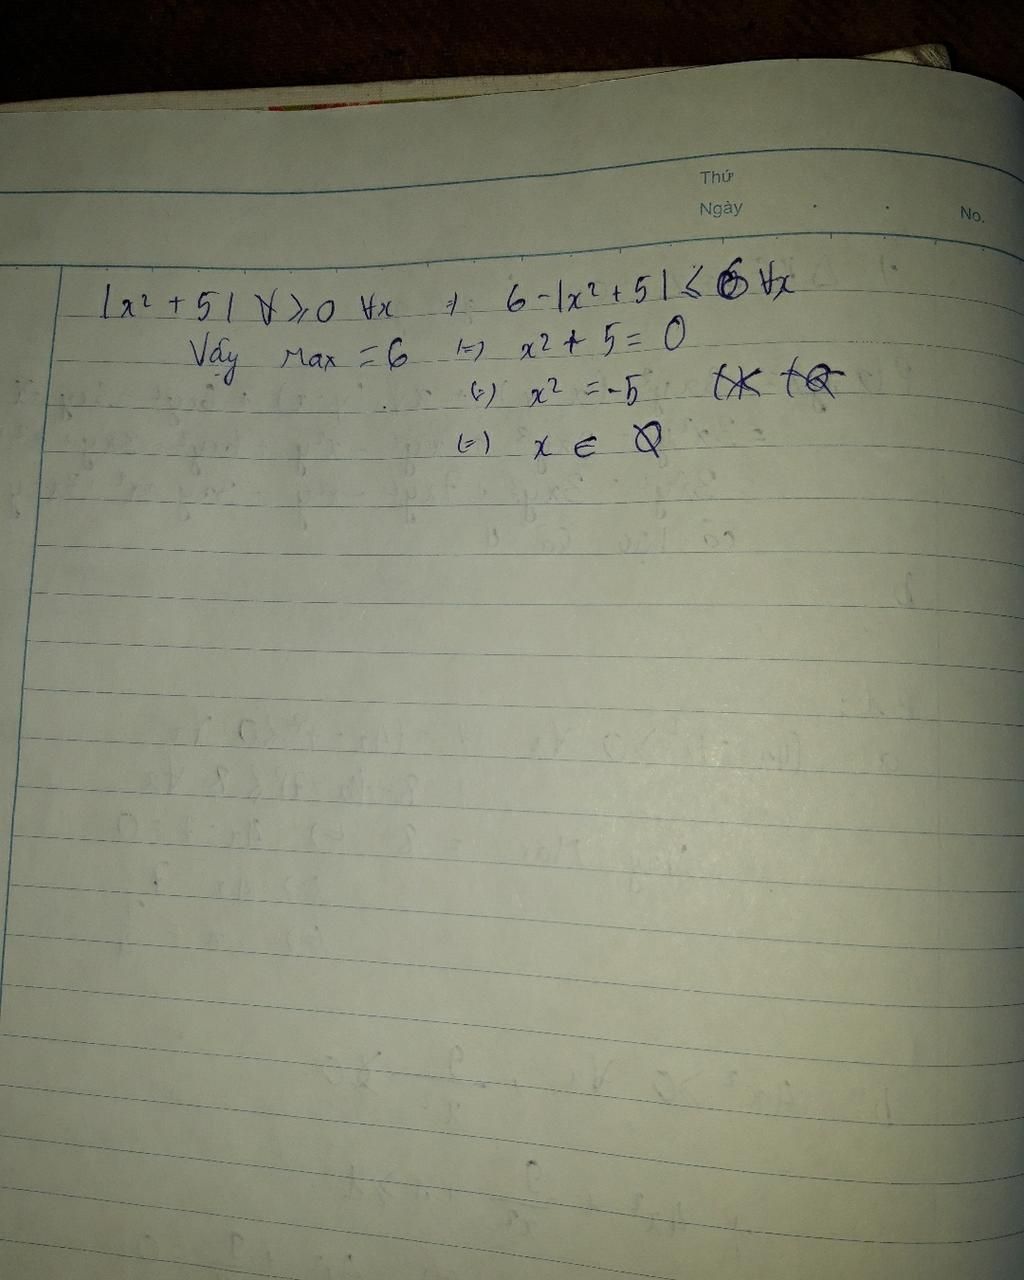 Thứ
Ngày
No.
|x² + 5| ∀ ≥ 0 ∀x ⇒ 6 - |x² + 5| ≤ 6 ∀x
Vậy Max = 6 (=) x² + 5 = 0
(=) x² = -5
(=) x ∈ ∅